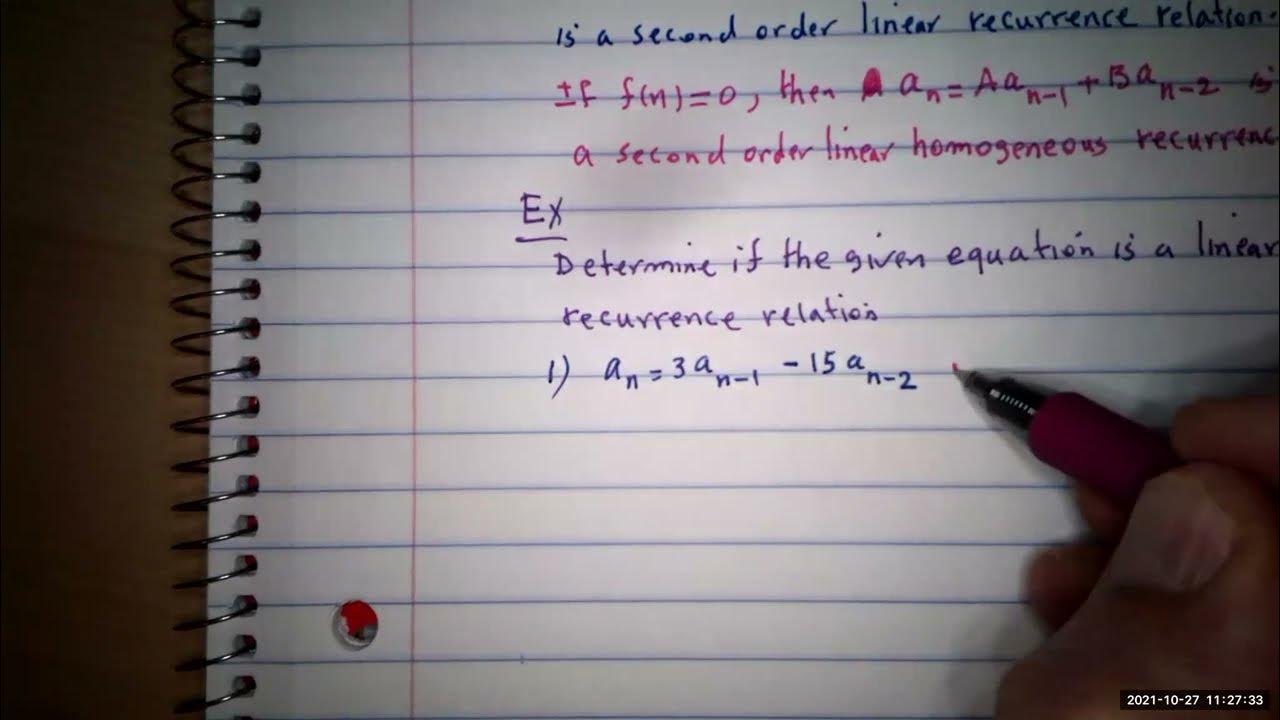 is a second order linear recurrence relation.
If f(n)=0, then a_n = Aa_{n-1} + Ba_{n-2} is
a second order linear homogeneous recurrenc
Ex
Determine if the given equation is a linear
recurrence relation
1) a_n = 3a_{n-1} - 15a_{n-2}
2021-10-27 11:27:33